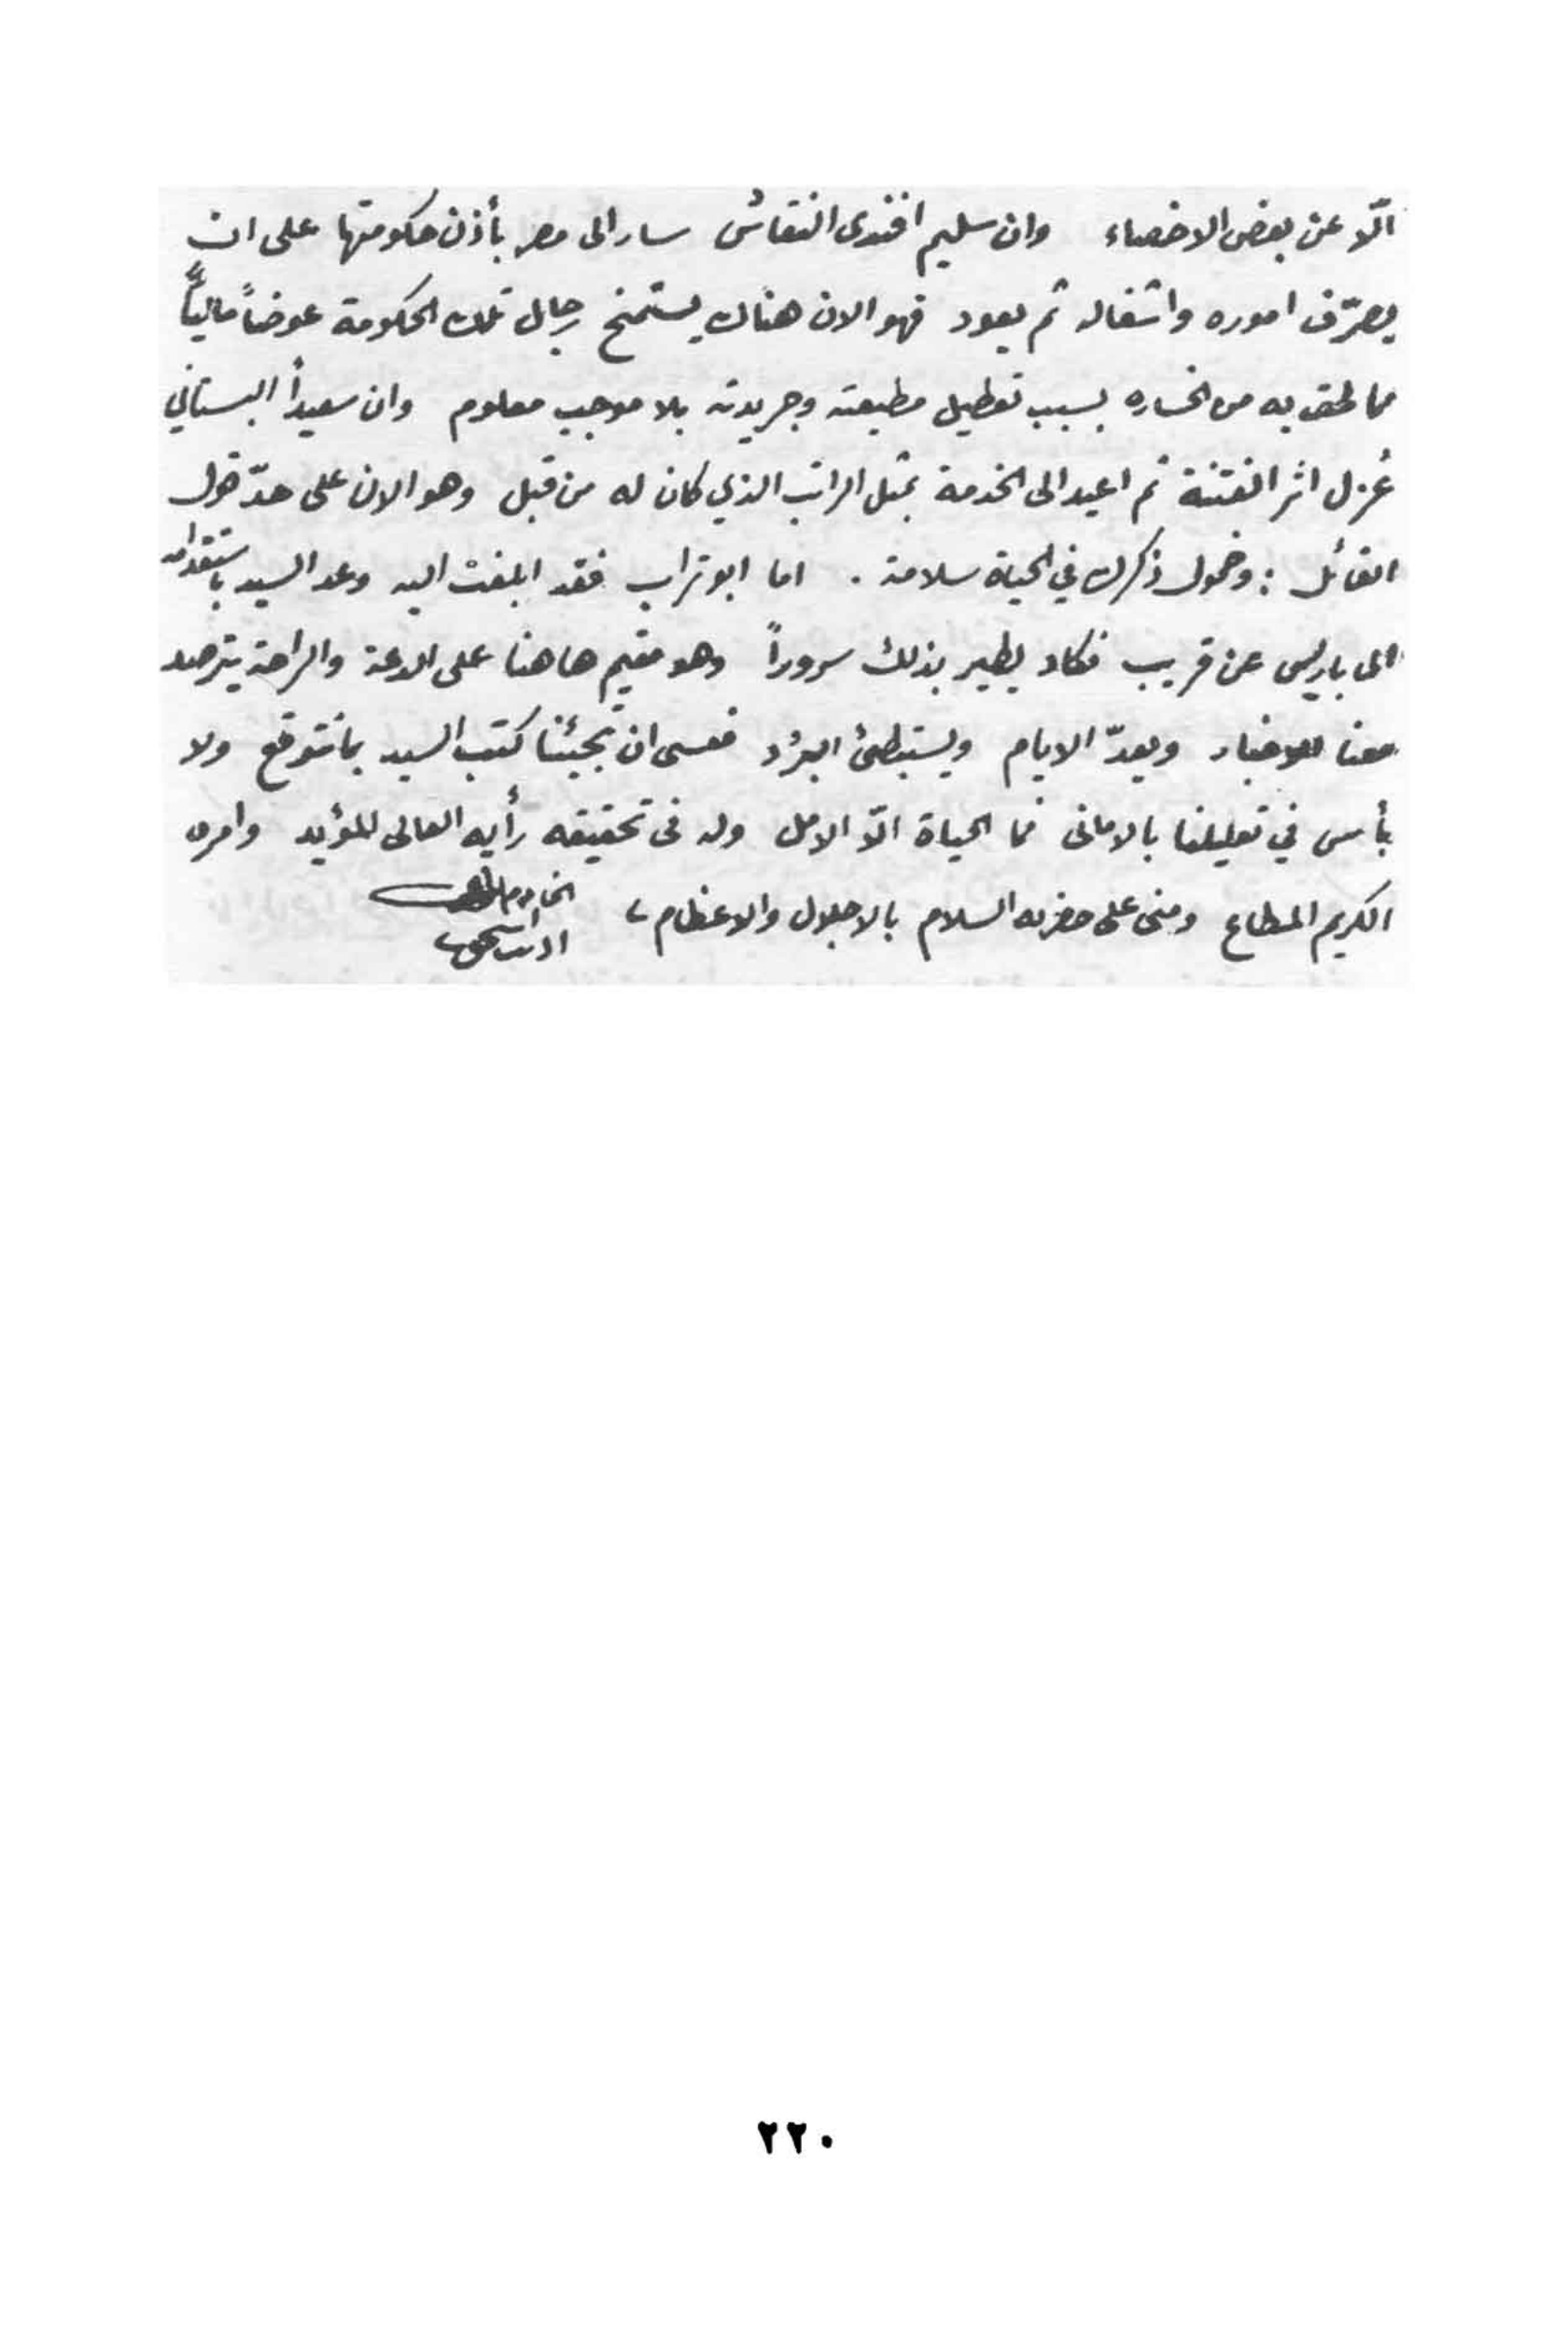 الّا عن بعض الاخصاء وان سليم افندى النقاش سار الى مصر بأذن حكومتها على ان
يصرّف اموره واشغاله ثم يعود فهو الان هناك يستمنح رجال تلك الحكومة عوضاً مالياً
مما لحق به من الخساره بسبب تعطيل مطبعته وجريدته بلا موجب معلوم وان سعيداً البستاني
عُزل اثر الفتنة ثم اعيد الى الخدمة بمثل الراتب الذي كان له من قبل وهو الان على حدّ قول
القائل : وخمول ذكرك في الحياة سلامة . اما ابو تراب فقد ابلغت اليه وعد السيد باستقدامه
الى باريس عن قريب فكاد يطير بذلك سروراً وهو مقيم هاهنا على الدعة والراحة يترصد
معنا الاخبار ويعدّ الايام ويستبطئ البرُد فعسى ان تجيئنا كتب السيد بما نتوقع ولا
بأس في تعليلنا بالامانى فما الحياة الّا الامل وله فى تحقيقه رأيه العالى المؤيد وامره
الكريم المطاع ومنى على حضرته السلام بالاجلال والاعظام
الخادم
اديب اسحق
٢٢٠